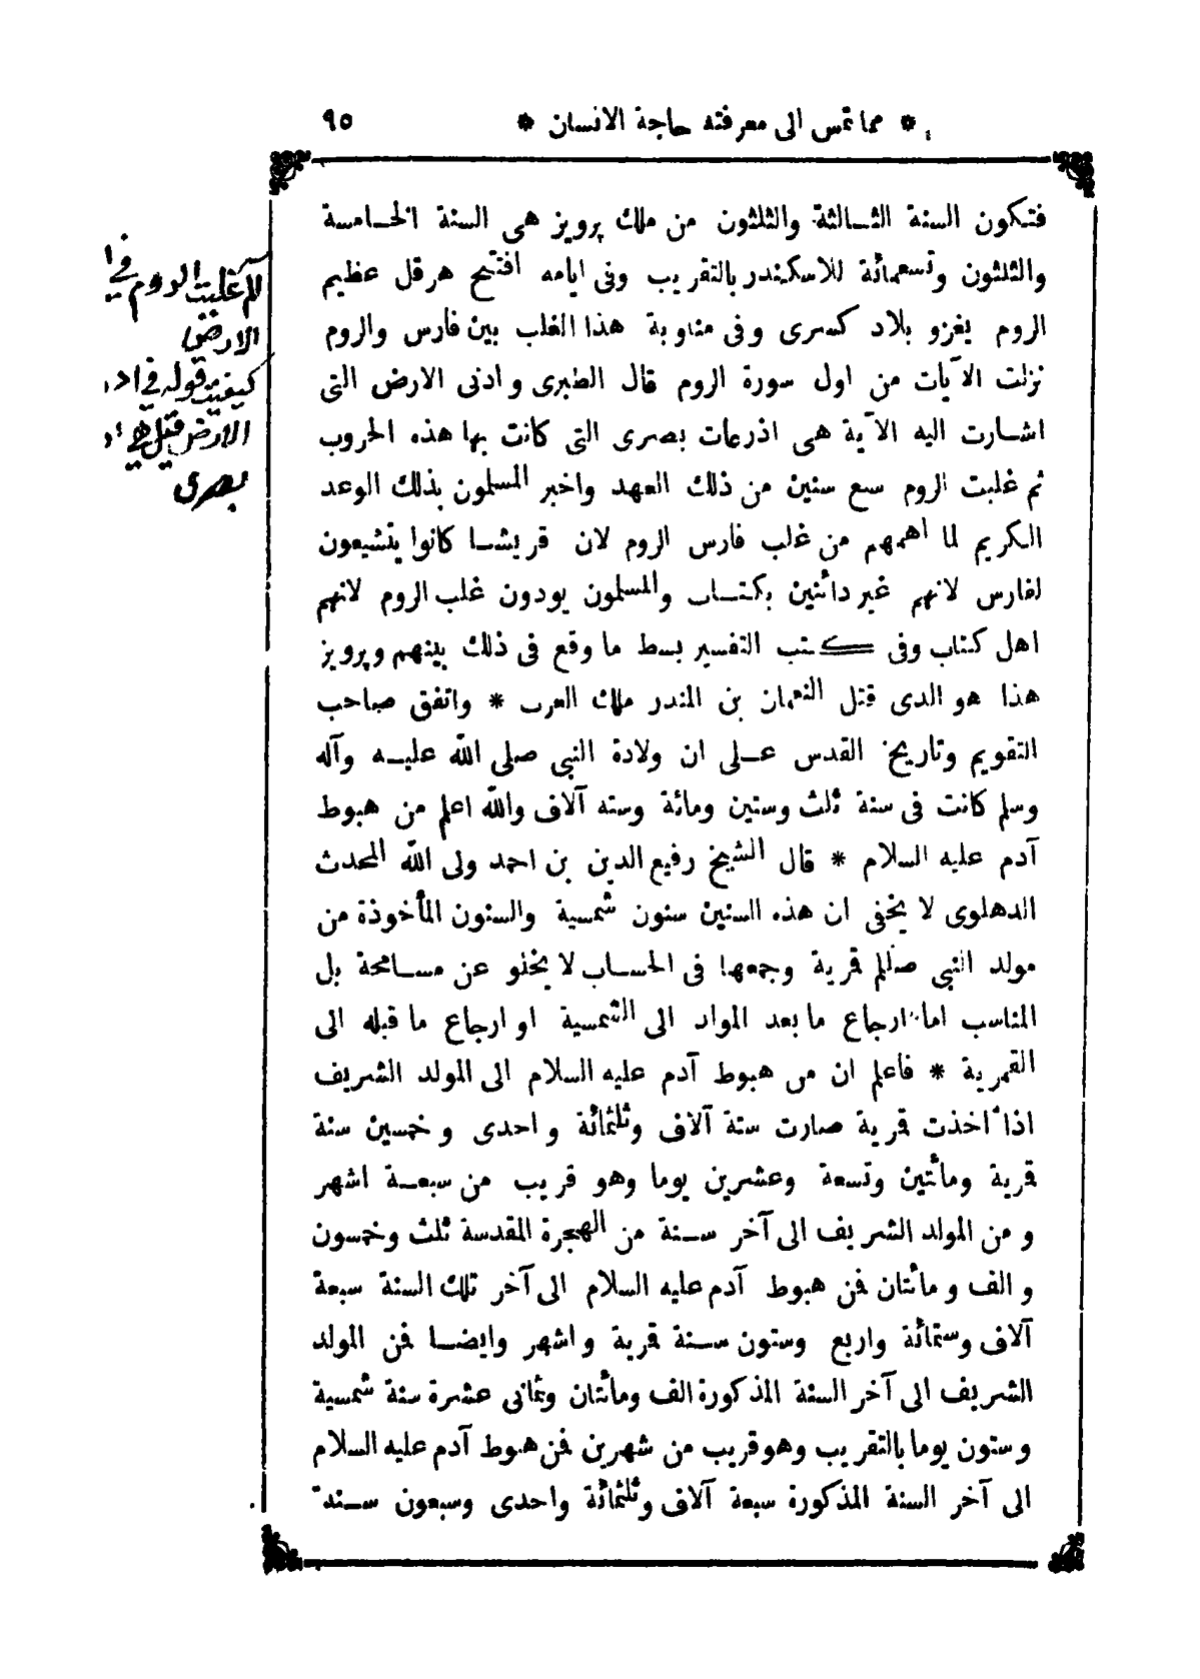 * مما تمس الى معرفته حاجة الانسان * ٩٥
فتكون السنة الثـالثة والثلثون من ملك پرويز هى السنة الخـامسة
والثلثون وتسعمائة للاسكندر بالتقريب وفى ايامه افتتح هرقل عظيم
الروم يغزو بلاد كسرى وفى مناوبة هذا الغلب بين فارس والروم
نزلت الآيات من اول سورة الروم قال الطبرى وادنى الارض التى
اشـارت اليه الآية هى اذرعات بصرى التى كانت بها هذه الحروب
ثم غلبت الروم سبع سنين من ذلك العهد واخبر المسلمون بذلك الوعد
الكريم لما اهمهم من غلب فارس الروم لان قريشـا كانوا يتشيعون
لفارس لانهم غير دائنين بكتـاب والمسلمون يودون غلب الروم لانهم
اهل كتاب وفى كتب التفسير بسط ما وقع فى ذلك بينهم وپرويز
هذا هو الذى قتل النعمان بن المنذر ملك العرب * واتفق صاحب
التقويم وتاريخ القدس عـلى ان ولادة النبى صلى الله عليـه وآله
وسلم كانت فى سنة ثلث وستين ومائة وسته آلاف والله اعلم من هبوط
آدم عليه السلام * قال الشيخ رفيع الدين بن احمد ولى الله المحدث
الدهلوى لا يخفى ان هذه السنين سنون شمسية والسنون المأخوذة من
مولد النبى صللم قمرية وجمعها فى الحسـاب لا يخلو عن مسـامحة بل
المناسب اما ارجاع ما بعد المولد الى الشمسية او ارجاع ما قبله الى
القمرية * فاعلم ان من هبوط آدم عليه السلام الى المولد الشريف
اذا اخذت قمرية صارت ستة آلاف وثلثمائة واحدى وخمسين سنة
قمرية ومائتين وتسعة وعشرين يوما وهو قريب من سبعـة اشهر
ومن المولد الشريف الى آخر سـنة من الهجرة المقدسة ثلث وخمسون
والف ومائتان فمن هبوط آدم عليه السلام الى آخر تلك السنة سبعة
آلاف وستمائة واربع وستون سـنة قمرية واشهر وايضـا فمن المولد
الشريف الى آخر السنة المذكورة الف ومائتان وثمانى عشرة سنة شمسية
وستون يوما بالتقريب وهو قريب من شهرين فمن هبوط آدم عليه السلام
الى آخر السنة المذكورة سبعة آلاف وثلثمائة واحدى وسبعون سـنة
الم غلبت الروم فى ا
الارض
كيفيت قوله فى اد
الارض قيل هى اد
بصرى